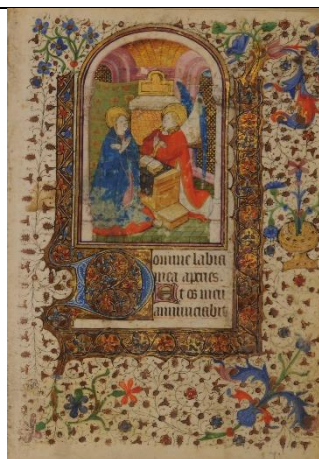 Domine labia
mea aperies.
Et os meu
annunciabit